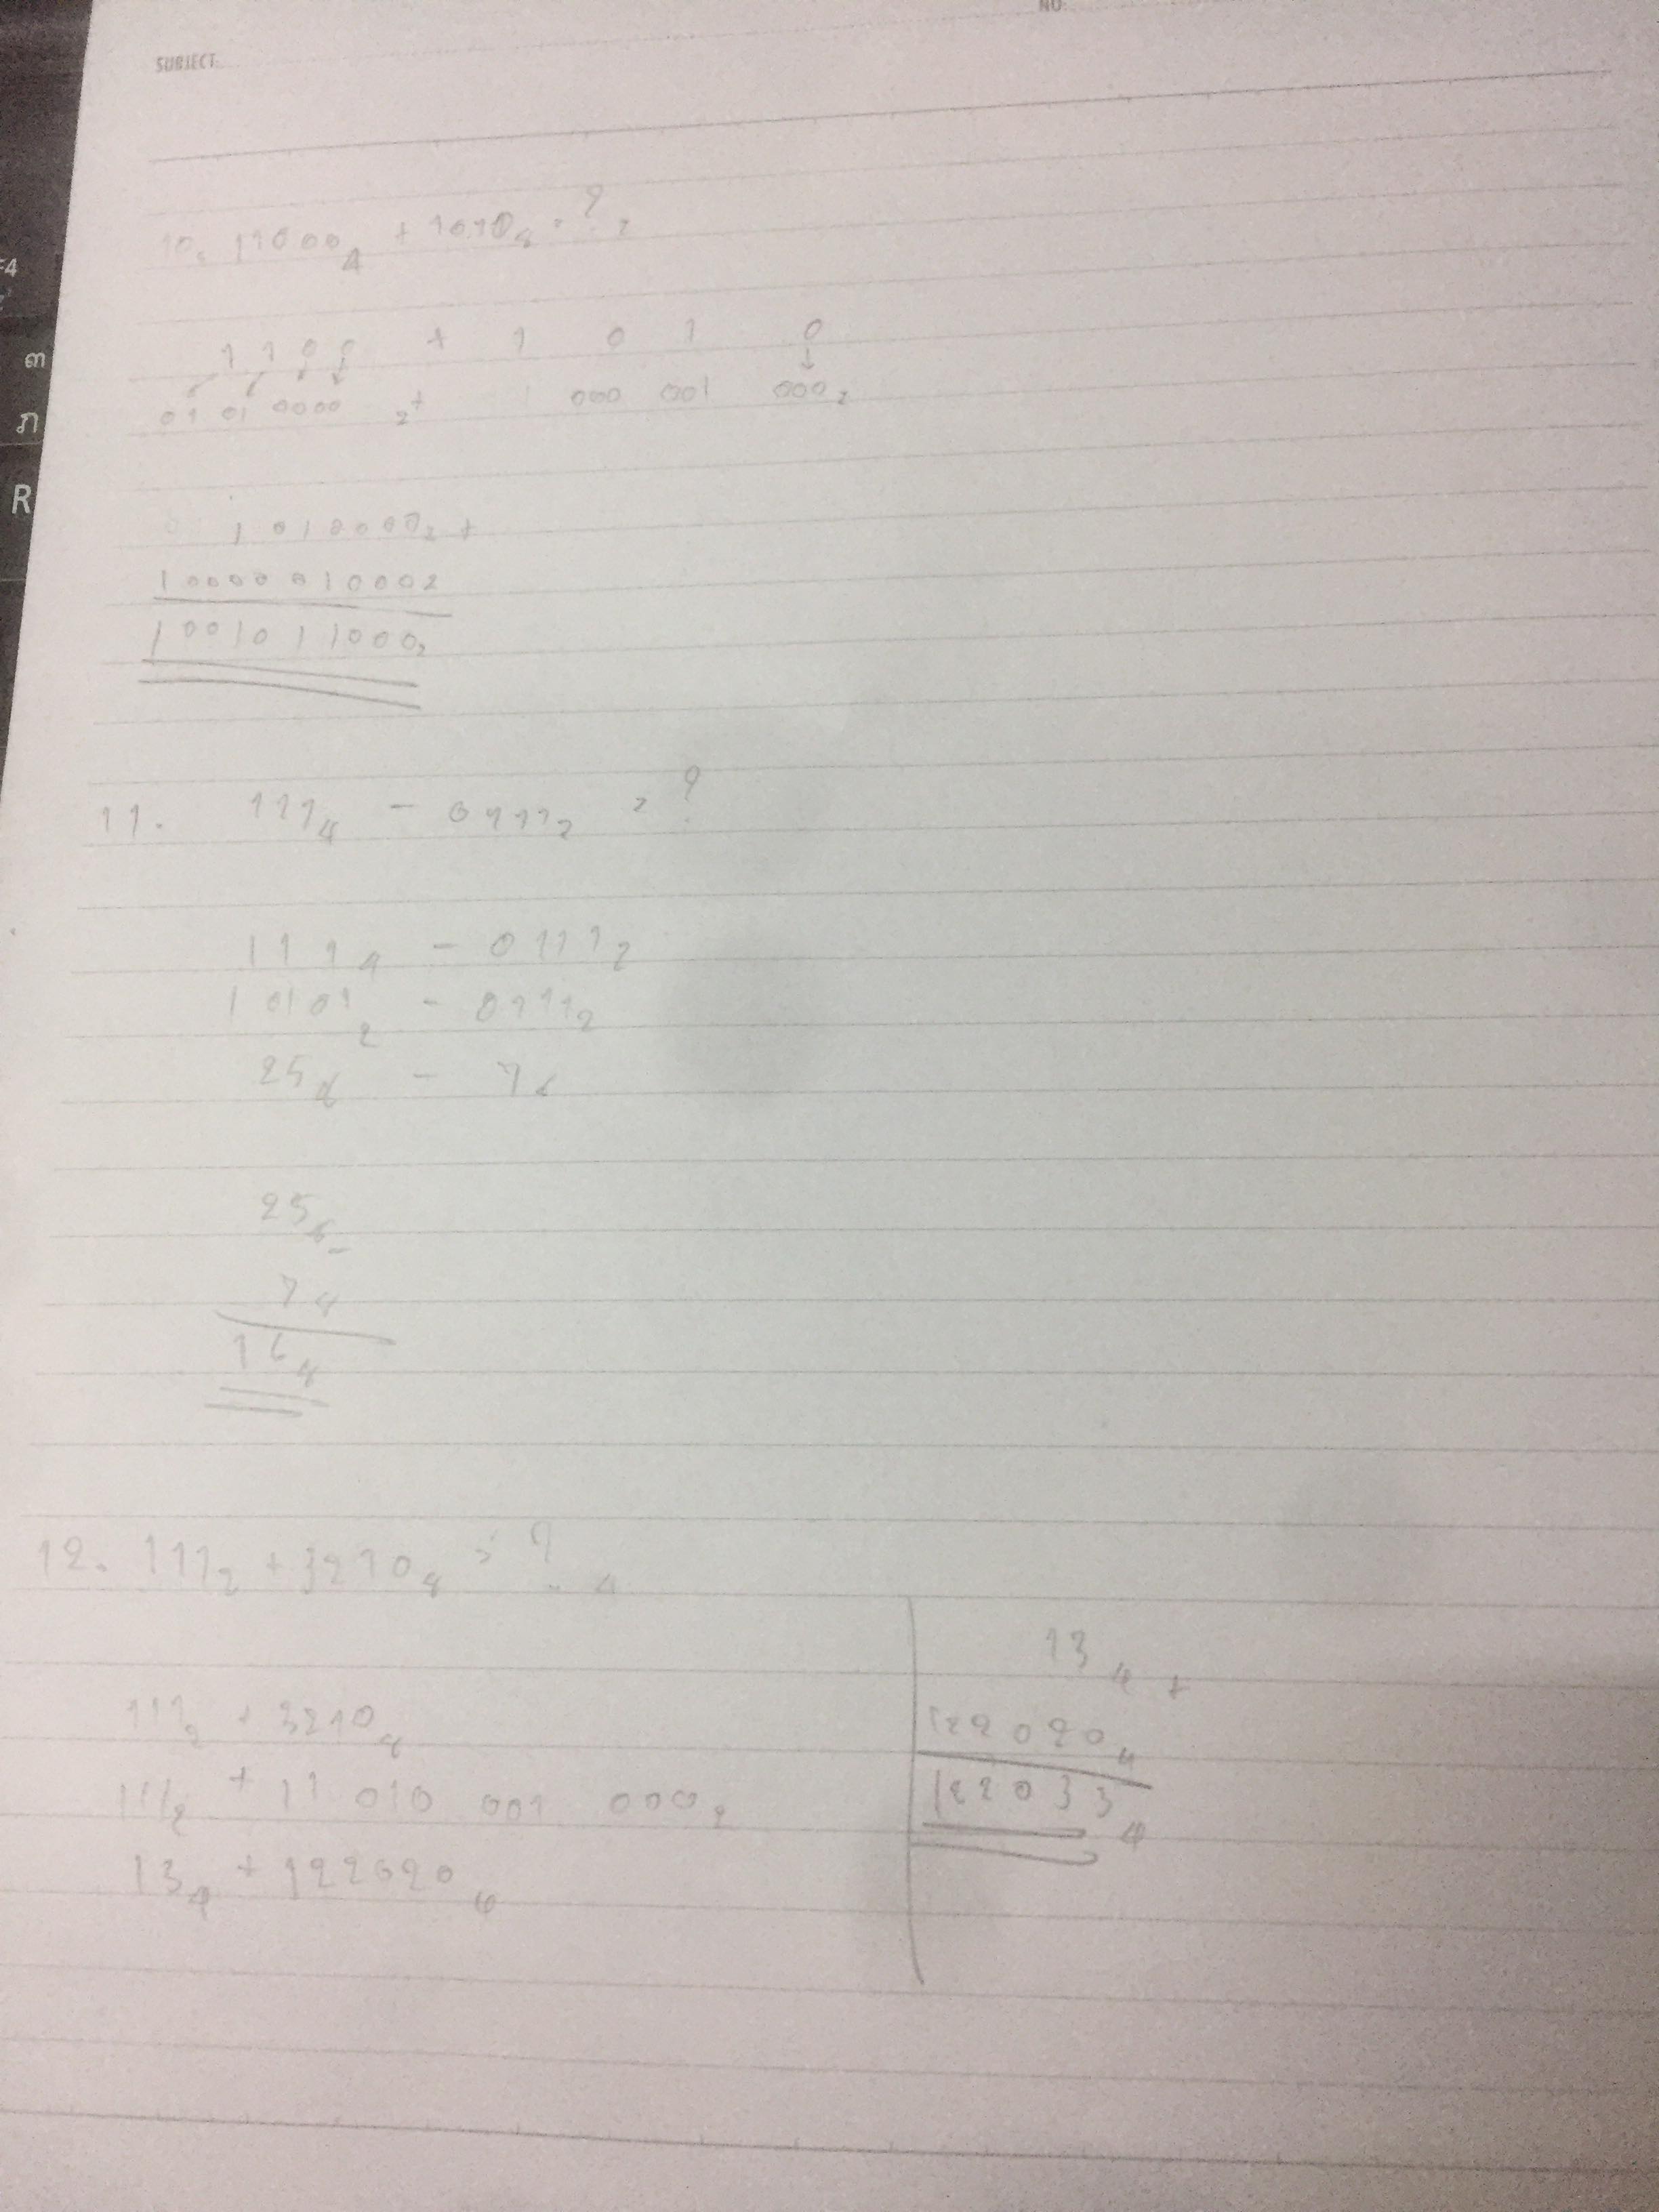 NO:
SUBJECT:
F4
ต
ภ
R
10. 11000₄ + 1010₈ = ?₂
1 1 0 0 + 1 0 1 0
01 01 0000 ₂+ 1 000 001 000₂
1010000₂ +
1000001000₂
1001011000₂
11. 111₄ - 0111₂ = ?
111₄ - 0111₂
10101₂ - 0111₂
25₈ - 7₈
25₈ -
7₈
16₈
12. 111₂ + 3210₈ = ?₄
111₂ + 3210₈
111₂ + 11 010 001 000₂
13₄ + 122020₄
13₄ +
122020₄
122033₄